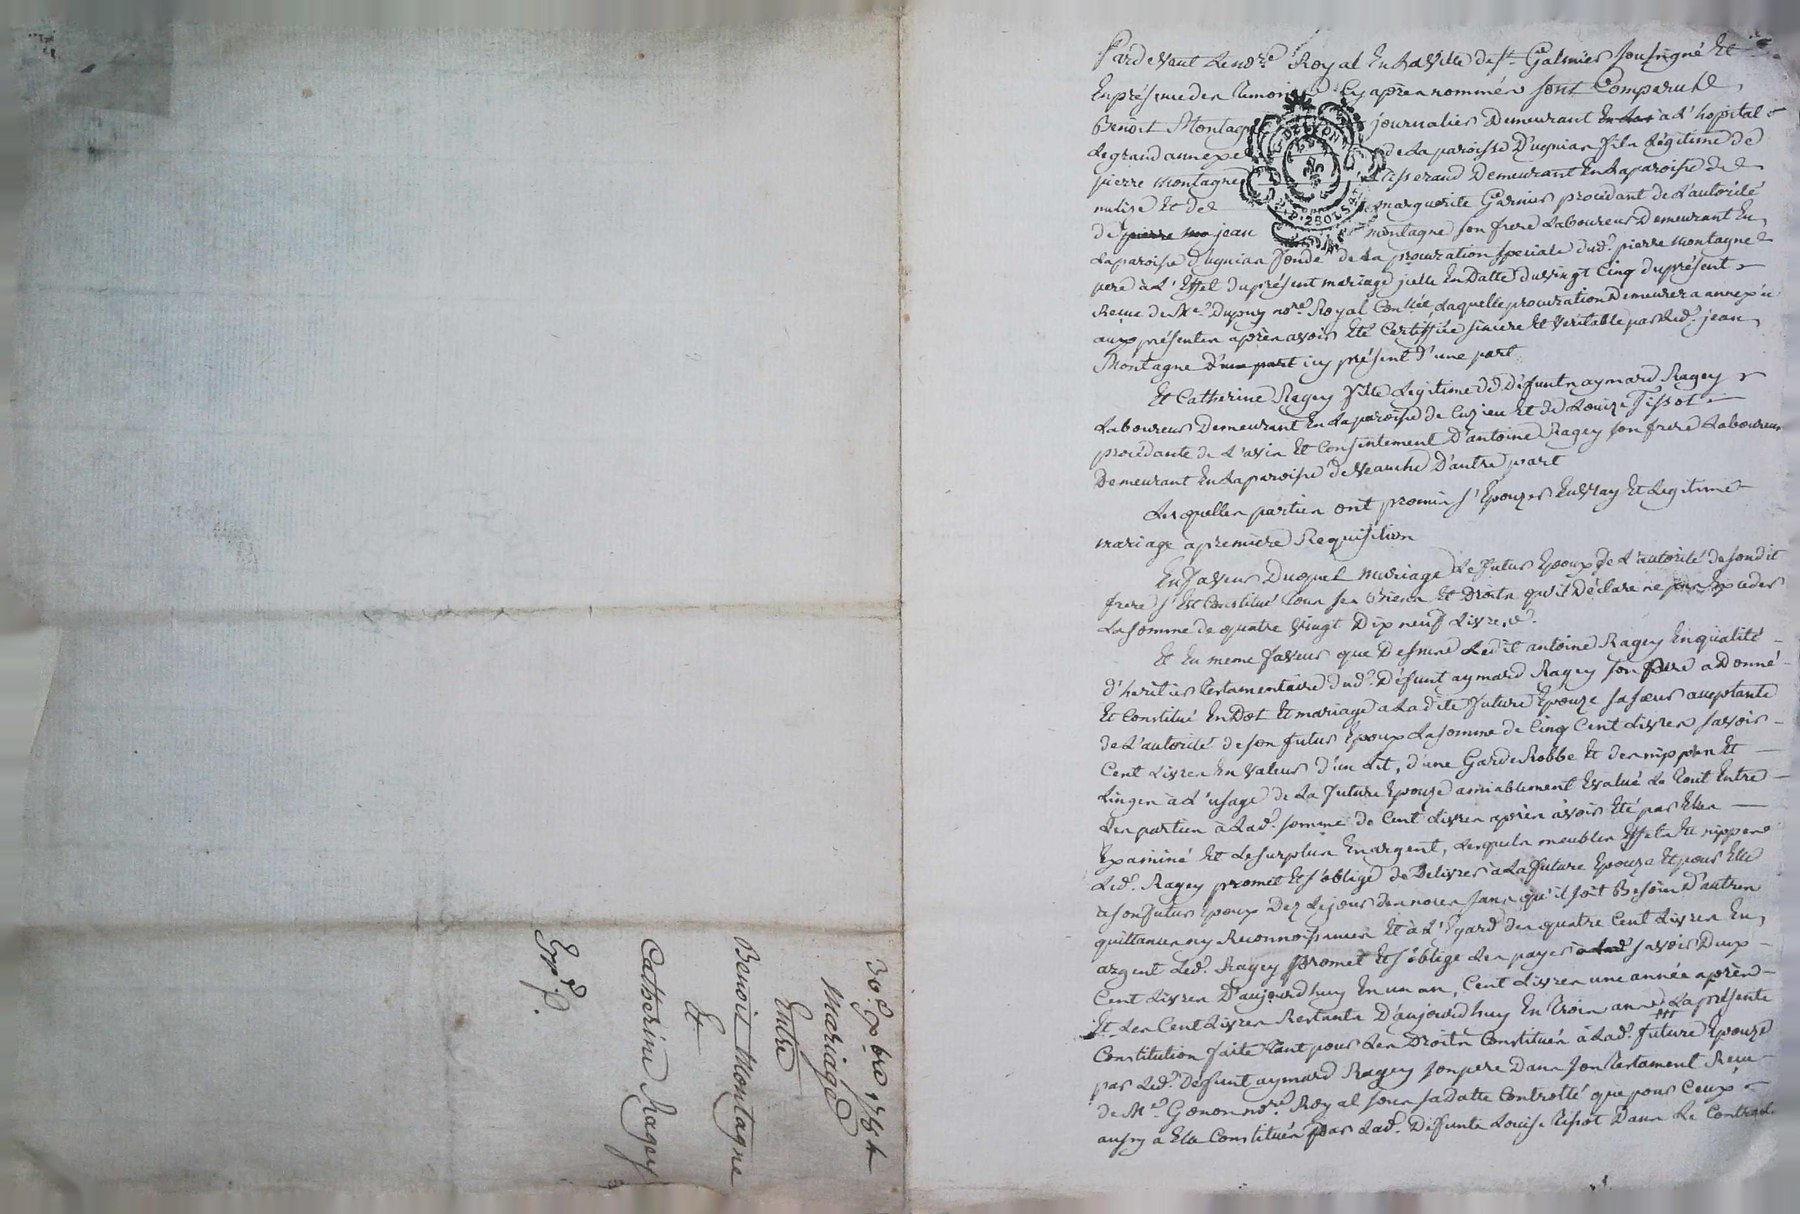 Pardevant le no.re Royal En La Ville de St Galmier soussigné Et
En présence des temoins Cy après nommés sont Comparus
Benoit Montagne journalier Demeurant à L'hopital
Le grand annexe de La paroisse D'ugnias fils Légitime de
pierre montagne tisserand Demeurant En La paroisse de
nulise Et de marguerite Garnier procedant de L'autorité
de pierre mo jean montagne son frere Laboureur Demeurant En
La paroisse d'ugnias fondé de La procuration speciale dud. pierre montagne
pere à L'Effet du présent mariage icelle En Datte du vingt Cinq du présent
Reçue de Me Dupuy no.re Royal laquelle procuration Demeurera annexée
aux présentes après avoir Eté Certiffiée sincere Et veritable par Led. jean
Montagne D'une part icy présent d'une part
Et Catherine Ragey fille Légitime de défunt aymard Ragey
Laboureur Demeurant En La paroisse de Cuzieu Et de Louize Tissot
procédante de L'avis Et Consentement D'antoine Ragey son frere Laboureur
Demeurant En La paroisse de veauche D'autre part
Lesquelles parties ont promis s'Epouzer En vray Et Legitime
mariage a premiere Requisition
En faveur Duquel mariage Le futur Epoux de L'autorité de sondit
frere s'Est Constitué tous ses Biens Et Droits qu'il Déclare ne pas Exceder
La somme de quatre vingt Dix neuf Livres.
Et En meme faveur que Dessus Ledit antoine Ragey En qualité
d'heritier testamentaire dud. Défunt aymard Ragey son pere a Donné
Et Constitué En Dot Et mariage a La dite future Epouze sa sœur acceptante
de L'autorité de son futur Epoux La somme de Cinq Cent Livres savoir
Cent Livres En valeur d'un Lit, d'une GardeRobbe Et des nippes Et
Linges à L'usage de La future Epouze amiablement Evalué Le tout Entre
Les parties à Lad. somme de Cent Livres après avoir Eté par Elles
Examiné Et Le surplus En argent, Lesquels meubles Effets Et nippes
Led. Ragey promet Et s'oblige de Delivrer à La future Epouze Et pour Elle
a son futur Epoux Dez Le jour des noces sans qu'il soit Besoin D'autres
quittances ny Reconnoissances Et à L'Egard des quatre Cent Livres En
argent Led. Ragey promet Et s'oblige Les payer savoir Deux
Cent Livres D'aujourdhuy En un an, Cent Livres une année après
Et Les Cent Livres Restants D'aujourdhuy En trois ans La présente
Constitution faite tant pour Les Droits Constitués à Lad. future Epouze
par Led. defunt aymard Ragey son pere Dans son testament Reçu
de Me. Gonon no.re Royal sous sa Datte Controllé que pour Ceux
aussy à Elle Constitués par Lad. Défunte Louise Tissot Dans Le Contrat
30e 7bre 1784
Mariage
Entre
Benoit Montagne
Et
Catherine Ragey
Exp.